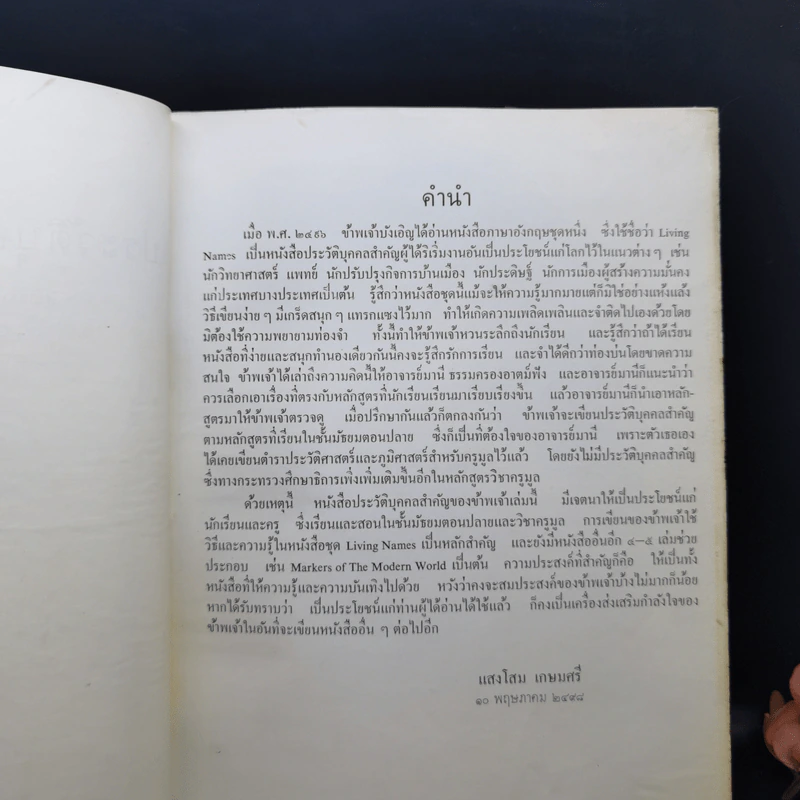 คำนำ
เมื่อ พ.ศ. ๒๔๙๖ ข้าพเจ้าบังเอิญได้อ่านหนังสือภาษาอังกฤษชุดหนึ่ง ซึ่งใช้ชื่อว่า Living
Names เป็นหนังสือประวัติบุคคลสำคัญผู้ได้ริเริ่มงานอันเป็นประโยชน์แก่โลกไว้ในแนวต่างๆ เช่น
นักวิทยาศาสตร์ แพทย์ นักปรับปรุงกิจการบ้านเมือง นักประดิษฐ์ นักการเมืองผู้สร้างความมั่นคง
แก่ประเทศบางประเทศเป็นต้น รู้สึกว่าหนังสือชุดนี้แม้จะให้ความรู้มากมายแต่ก็มิใช่อย่างแห้งแล้ง
วิธีเขียนง่าย ๆ มีเกร็ดสนุก ๆ แทรกแซงไว้มาก ทำให้เกิดความเพลิดเพลินและจำติดไปเองด้วยโดย
มิต้องใช้ความพยายามท่องจำ ทั้งนี้ทำให้ข้าพเจ้าหวนระลึกถึงนักเรียน และรู้สึกว่าถ้าได้เรียน
หนังสือที่ง่ายและสนุกทำนองเดียวกันนี้คงจะรู้สึกรักการเรียน และจำได้ดีกว่าท่องบ่นโดยขาดความ
สนใจ ข้าพเจ้าได้เล่าถึงความคิดนี้ให้อาจารย์มานี ธรรมครองอาตม์ฟัง และอาจารย์มานีก็แนะนำว่า
ควรเลือกเอาเรื่องที่ตรงกับหลักสูตรที่นักเรียนเรียนมาเรียบเรียงขึ้น แล้วอาจารย์มานีก็นำเอาหลัก-
สูตรมาให้ข้าพเจ้าตรวจดู เมื่อปรึกษากันแล้วก็ตกลงกันว่า ข้าพเจ้าจะเขียนประวัติบุคคลสำคัญ
ตามหลักสูตรที่เรียนในชั้นมัธยมตอนปลาย ซึ่งก็เป็นที่ต้องใจของอาจารย์มานี เพราะตัวเธอเอง
ได้เคยเขียนตำราประวัติศาสตร์และภูมิศาสตร์สำหรับครูมูลไว้แล้ว โดยยังไม่มีประวัติบุคคลสำคัญ
ซึ่งทางกระทรวงศึกษาธิการเพิ่งเพิ่มเติมขึ้นอีกในหลักสูตรวิชาครูมูล
ด้วยเหตุนี้ หนังสือประวัติบุคคลสำคัญของข้าพเจ้าเล่มนี้ มีเจตนาให้เป็นประโยชน์แก่
นักเรียนและครู ซึ่งเรียนและสอนในชั้นมัธยมตอนปลายและวิชาครูมูล การเขียนของข้าพเจ้าใช้
วิธีและความรู้ในหนังสือชุด Living Names เป็นหลักสำคัญ และยังมีหนังสืออื่นอีก ๔–๕ เล่มช่วย
ประกอบ เช่น Markers of The Modern World เป็นต้น ความประสงค์ที่สำคัญก็คือ ให้เป็นทั้ง
หนังสือที่ให้ความรู้และความบันเทิงไปด้วย หวังว่าคงจะสมประสงค์ของข้าพเจ้าบ้างไม่มากก็น้อย
หากได้รับทราบว่า เป็นประโยชน์แก่ท่านผู้ได้อ่านได้ใช้แล้ว ก็คงเป็นเครื่องส่งเสริมกำลังใจของ
ข้าพเจ้าในอันที่จะเขียนหนังสืออื่น ๆ ต่อไปอีก
แสงโสม เกษมศรี
๑๐ พฤษภาคม ๒๔๙๘